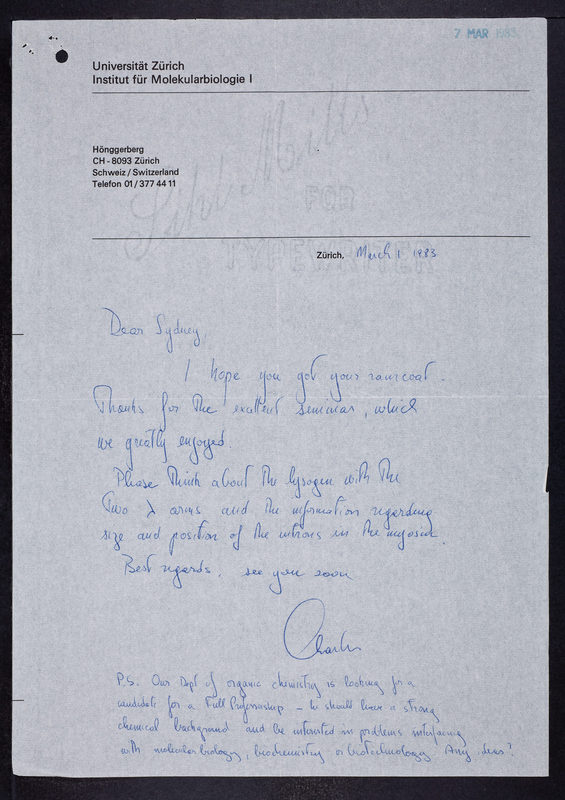 7 MAR 1983
Universität Zürich
Institut für Molekularbiologie I
Hönggerberg
CH - 8093 Zürich
Schweiz / Switzerland
Telefon 01 / 377 44 11
Sihl Mills
FOR
TYPEWRITER
Zürich, March 1 1983
Dear Sydney,
I hope you got your raincoat.
Thanks for the excellent seminar, which
we greatly enjoyed.
Please think about the lysogen with the
two λ arms and the information regarding
size and position of the introns in the myosin.
Best regards, see you soon
Charles
P.S. Our Dept of organic chemistry is looking for a
candidate for a Full Professorship – he should have a strong
chemical background and be interested in problems interfacing
with molecular biology, biochemistry or biotechnology. Any ideas?